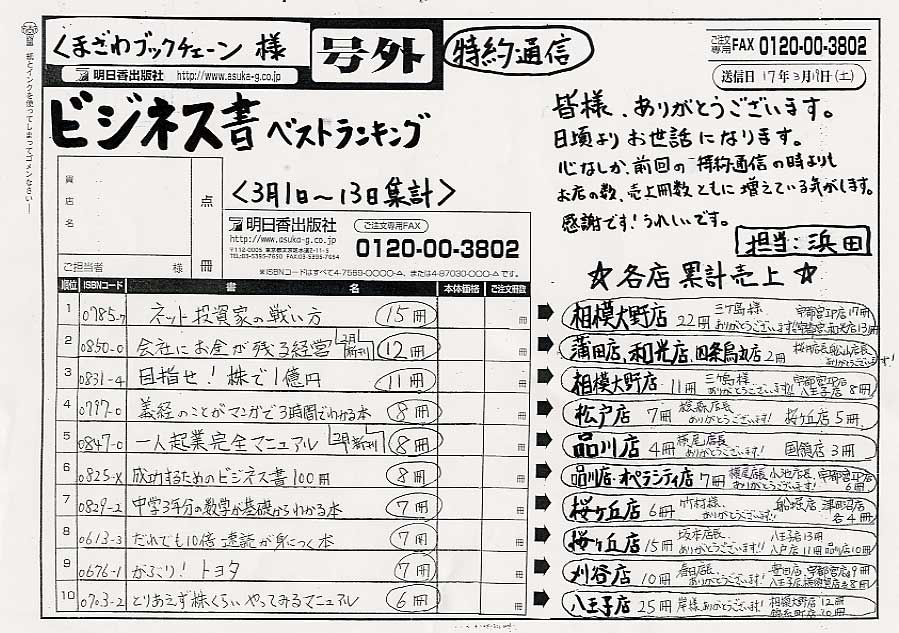 紙とインクを使ってしまってゴメンなさい
くまざわブックチェーン 様
明日香出版社 http://www.asuka-g.co.jp
号外
特約通信
ご注文専用FAX 0120-00-3802
送信日 17年3月19日(土)
ビジネス書 ベストランキング
皆様、ありがとうございます。
日頃よりお世話になります。
心なしか、前回の特約通信の時よりも
お店の数、売上冊数ともに増えている気がします。
感謝です!うれしいです。
担当:浜田
<3月1日〜13日集計>
貴店名
点
冊
ご担当者 様
明日香出版社 ご注文専用FAX
http://www.asuka-g.co.jp/
〒112-0005 東京都文京区水道2-11-5
TEL:03-5395-7650 FAX:03-5395-7654
0120-00-3802
※ISBNコードはすべて4-7569-○○○○-△、または4-87030-○○○-△です。
☆各店累計売上☆
順位 ISBNコード 書名 本体価格 ご注文冊数
1 0785-7 ネット投資家の戦い方 15冊 冊
相模大野店 22冊 ありがとうございます!
2 0850-0 会社にお金が残る経営 2月新刊 12冊 冊
蒲田店、和光店、四条烏丸店 2冊 ありがとうございます!
3 0831-4 目指せ!株で1億円 11冊 冊
相模大野店 11冊 ありがとうございます!! 八王子店 8冊
4 0777-0 義経のことがマンガで3時間でわかる本 8冊 冊
松戸店 7冊 ありがとうございます! 桜ヶ丘店 5冊
5 0847-0 一人起業完全マニュアル 2月新刊 8冊 冊
品川店 4冊 横尾店長、ありがとうございます! 国領店 3冊
6 0825-X 成功するためのビジネス書100冊 8冊 冊
品川店・オペラシティ店 7冊 横尾店長、小池店長、ありがとうございます! 宇都宮店 6冊
7 0829-2 中学3年分の数学が基礎からわかる本 7冊 冊
桜ヶ丘店 6冊 竹村様、ありがとうございます!! 船堀店 津田沼店 各4冊
8 0613-3 だれでも10倍速読が身につく本 7冊 冊
桜ヶ丘店 15冊 ありがとうございます!! 八王子店13冊 八戸店 11冊 品川店10冊
9 0676-1 がぶり!トヨタ 7冊 冊
刈谷店 10冊 春日店長、ありがとうございます!
10 0703-2 とりあえず株くらいやってみるマニュアル 6冊 冊
八王子店 25冊 岸様、ありがとうございます! 相模大野店 12冊 錦糸町店 10冊